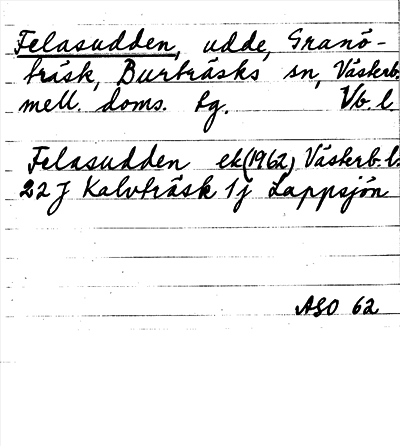 Felasudden, udde, Granö-
träsk, Burträsks sn, Västerb.
mell. doms. tg. Vb. l.
Felasudden ek (1962) Västerb. l.
22 J Kalvträsk 1 j Lappsjön
ASO 62